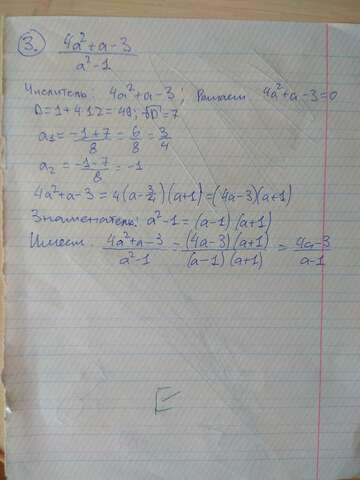 3. (4a²+a-3)/(a²-1)
Числитель: 4a²+a-3; Решаем 4a²+a-3=0
D=1+4·12=49; √D=7
a₁=(-1+7)/8=6/8=3/4
a₂=(-1-7)/8=-1
4a²+a-3=4(a-3/4)(a+1)=(4a-3)(a+1)
Знаменатель: a²-1=(a-1)(a+1)
Имеем: (4a²+a-3)/(a²-1)=((4a-3)(a+1))/((a-1)(a+1))=(4a-3)/(a-1)